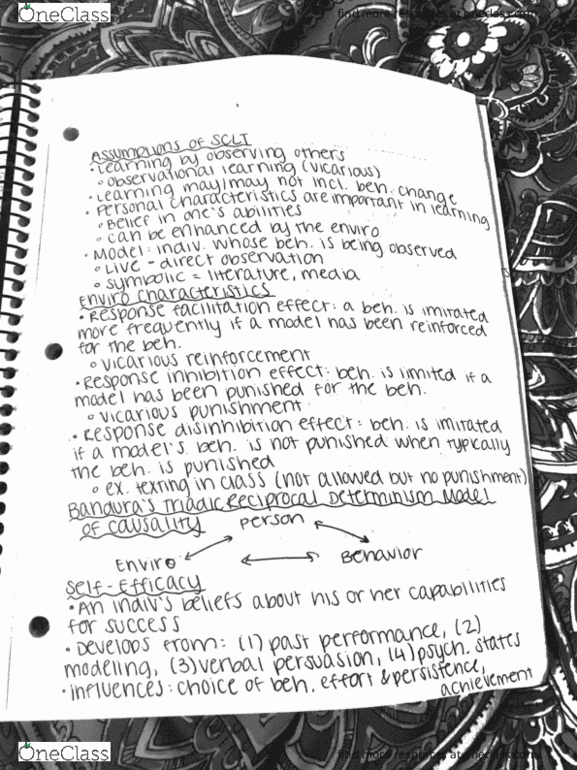 OneClass
find more resources at oneclass.com
Assumptions of SCLT
• Learning by observing others
◦ observational learning (vicarious)
• Learning may/may not incl. beh. change
• Personal characteristics are important in learning
◦ Belief in one's abilities
◦ can be enhanced by the enviro
• Model: indiv. whose beh. is being observed
◦ Live - direct observation
◦ symbolic = literature, media
Enviro characteristics
• Response facilitation effect: a beh. is imitated
more frequently if a model has been reinforced
for the beh.
◦ vicarious reinforcement
• Response inhibition effect: beh. is imited if a
model has been punished for the beh.
◦ vicarious punishment
• Response disinhibition effect: beh. is imitated
if a model's beh. is not punished when typically
the beh. is punished
◦ ex. texting in class (not allowed but no punishment)
Bandura's Triadic Reciprocal Determinism Model
of causality
Person
Enviro
Behavior
Self-Efficacy
• An indiv's beliefs about his or her capabilities
for success
• Develops from: (1) past performance, (2)
modeling, (3) verbal persuasion, (4) psych. states
• influences: choice of beh. effort & persistence,
achievement
OneClass
find more resources at oneclass.com